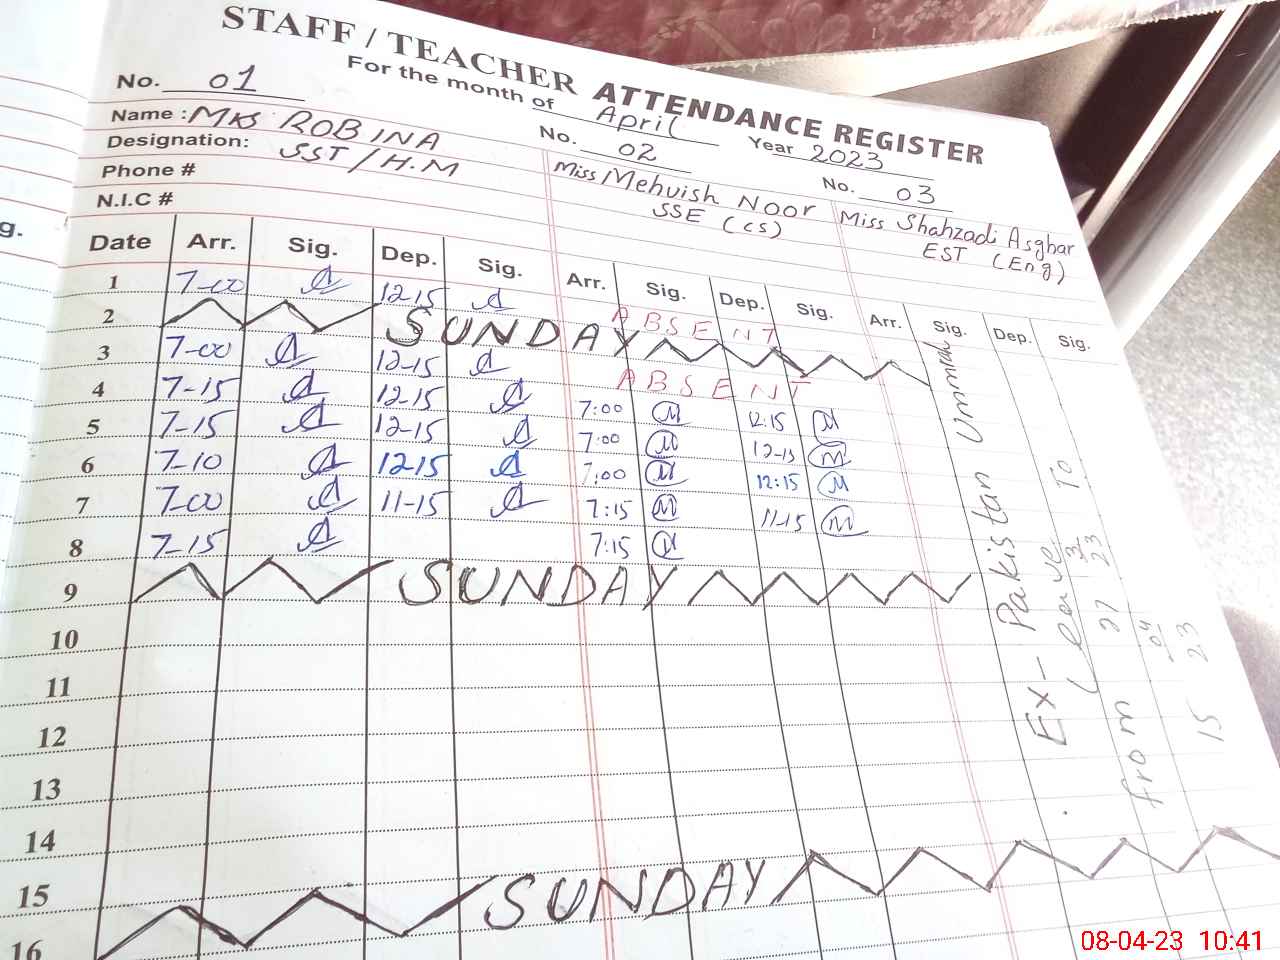 STAFF / TEACHER ATTENDANCE REGISTER
For the month of April Year 2023
No. 01 No. 02 No. 03
Name : MRS ROBINA Miss Mehwish Noor Miss Shahzadi Asghar
Designation: SST/H.M SSE (CS) EST (Eng)
Phone #
N.I.C #
g.
Date Arr. Sig. Dep. Sig. Arr. Sig. Dep. Sig. Arr. Sig. Dep. Sig.
1 7-00 12-15 ABSENT
2 SUNDAY
3 7-00 12-15 ABSENT
4 7-15 12-15 7:00 M 12:15 M
5 7-15 12-15 7:00 M 12-15 M
6 7-10 12-15 7:00 M 12:15 M
7 7-00 11-15 7:15 M 11-15 M
8 7-15 7:15 M
9 SUNDAY
10
11
12
13
14
15
16 SUNDAY
Ex- Pakistan
Leave To
from 27 3 23
15 04 23
08-04-23 10:41